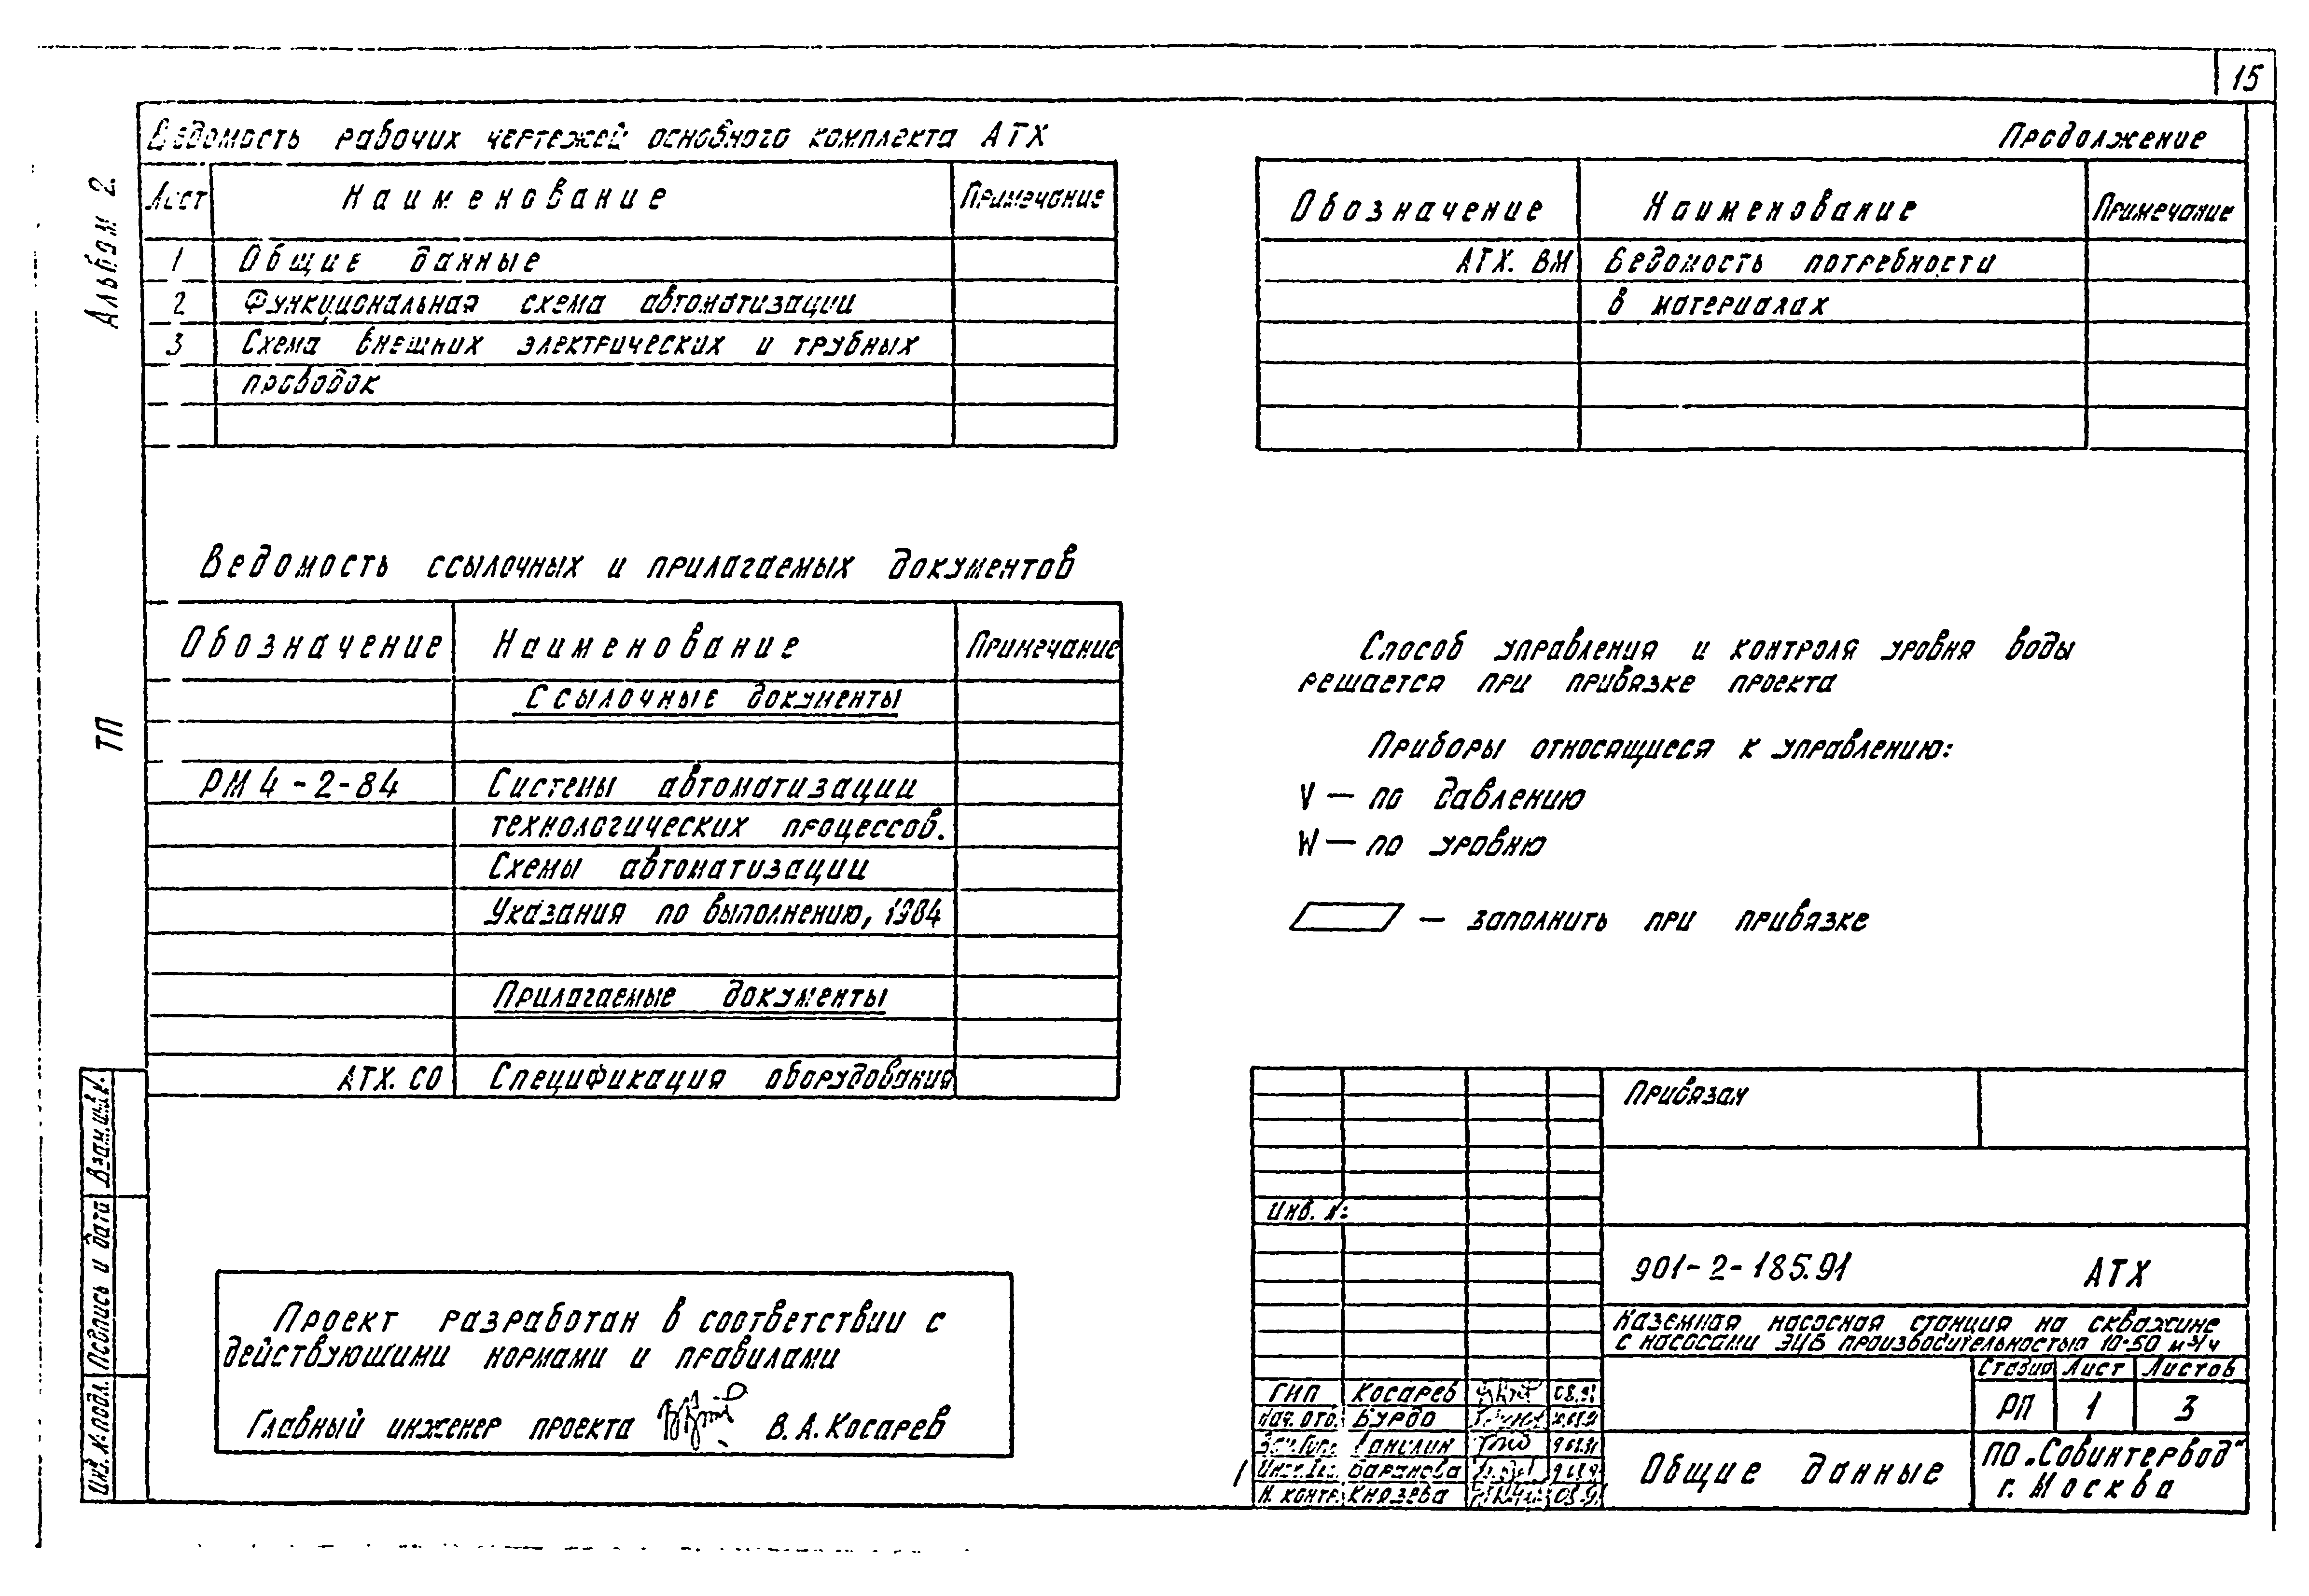 15
Альбом 2.
ТП
Ведомость рабочих чертежей основного комплекта АТХ
Лист Наименование Примечание
1 Общие данные
2 Функциональная схема автоматизации
3 Схема внешних электрических и трубных
проводок
Ведомость ссылочных и прилагаемых документов
Обозначение Наименование Примечание
Ссылочные документы
РМ 4-2-84 Системы автоматизации
технологических процессов.
Схемы автоматизации
Указания по выполнению, 1984
Прилагаемые документы
АТХ. СО Спецификация оборудования
Проект разработан в соответствии с
действующими нормами и правилами
Главный инженер проекта В.А.Косарев
Инв. № подл. Подпись и дата Взам.инв.№
Продолжение
Обозначение Наименование Примечание
АТХ. ВМ Ведомость потребности
в материалах
Способ управления и контроля уровня воды
решается при привязке проекта
Приборы относящиеся к управлению:
V — по давлению
W — по уровню
— заполнить при привязке
Привязан
Инв. №
901-2-185.91 АТХ
Наземная насосная станция на скважине
с насосами ЭЦВ производительностью 10-50 м³/ч
Стадия Лист Листов
РП 1 3
ГИП Косарев 08.91
Нач. отд. Бурдо
Н. контр. Князева
Общие данные
ПО „Совинтервод"
г. Москва